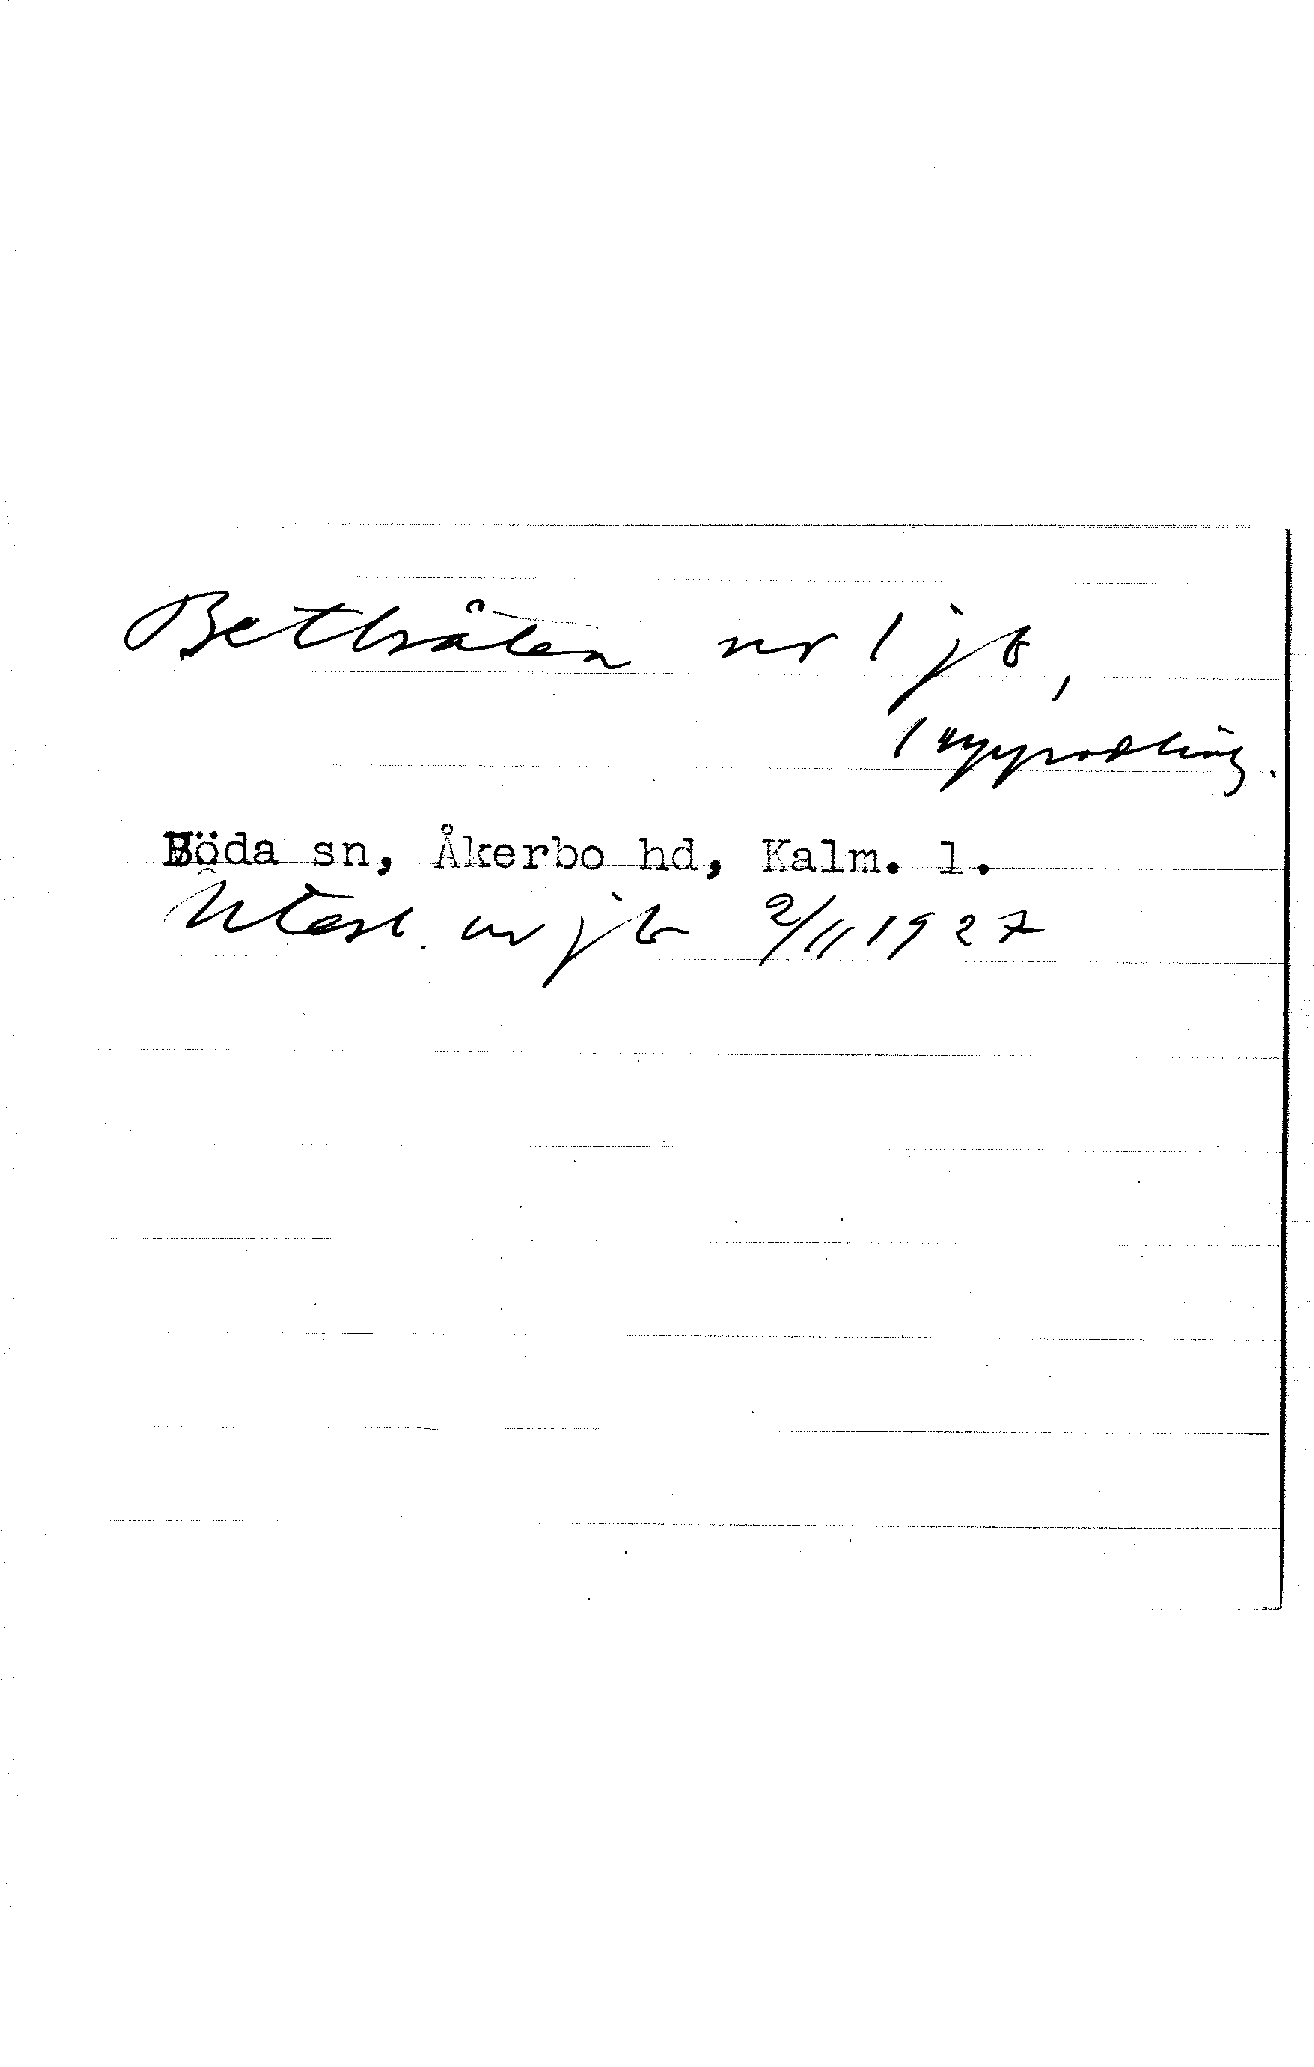 Betbråten nr 1 jb,
1 uppodling.
Böda sn, Åkerbo hd, Kalm. l.
Utesl. ur jb 2/11 1927